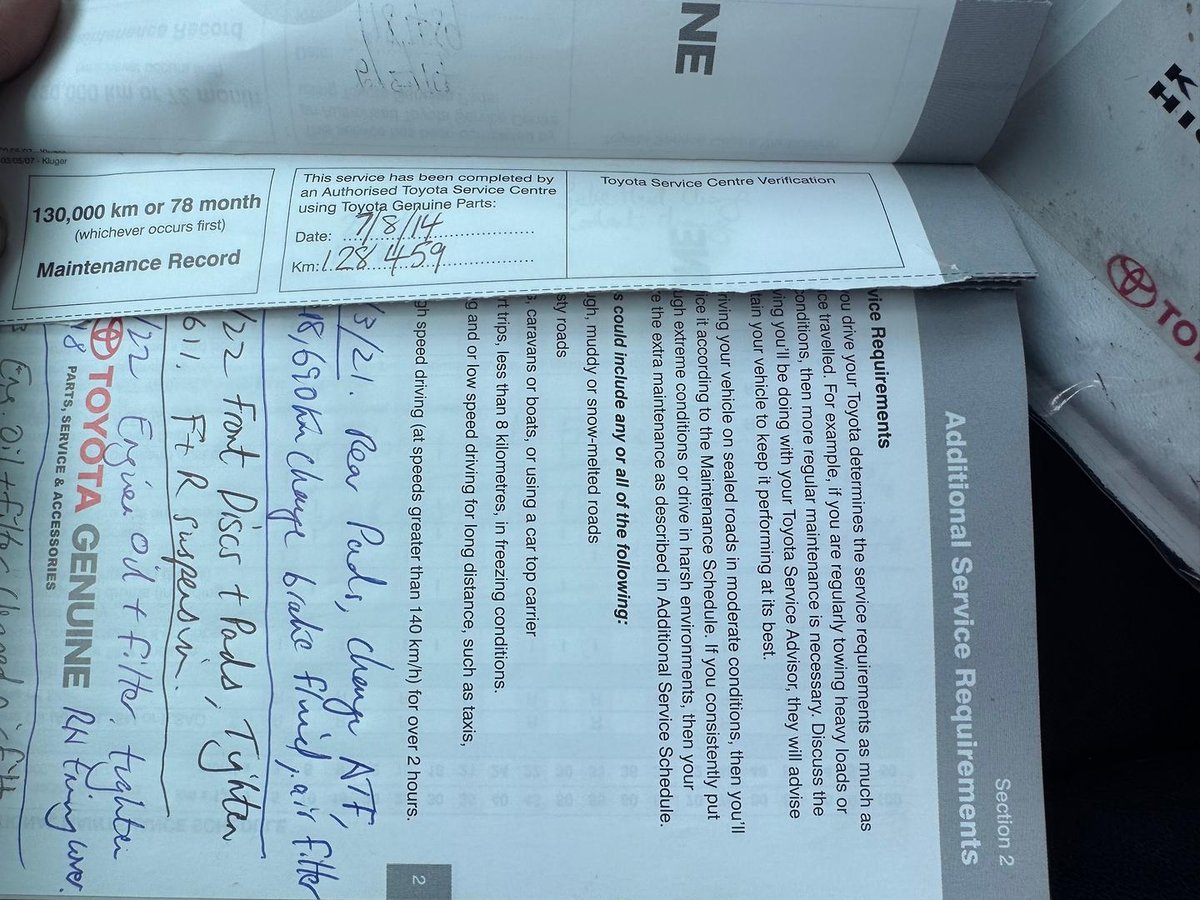 NE
03/05/07 - Kluger
130,000 km or 78 month
(whichever occurs first)
Maintenance Record
This service has been completed by
an Authorised Toyota Service Centre
using Toyota Genuine Parts:
Date: 7/8/14
Km: 128 459
Toyota Service Centre Verification
Section 2
Additional Service Requirements
vice Requirements
ou drive your Toyota determines the service requirements as much as
ce travelled. For example, if you are regularly towing heavy loads or
onditions, then more regular maintenance is necessary. Discuss the
ving you'll be doing with your Toyota Service Advisor, they will advise
tain your vehicle to keep it performing at its best.
riving your vehicle on sealed roads in moderate conditions, then you'll
ice it according to the Maintenance Schedule. If you consistently put
ugh extreme conditions or drive in harsh environments, then your
re the extra maintenance as described in Additional Service Schedule.
s could include any or all of the following:
ugh, muddy or snow-melted roads
sty roads
, caravans or boats, or using a car top carrier
rt trips, less than 8 kilometres, in freezing conditions.
g and or low speed driving for long distance, such as taxis,
gh speed driving (at speeds greater than 140 km/h) for over 2 hours.
/3/21. Rear Pads, change ATF,
18,690km change brake fluid, air filter
/22 Front Discs + Pads, Tighten
611. F + R suspension.
/22 Engine oil + filter, tighten
RH timing cover.
TOYOTA GENUINE
PARTS, SERVICE & ACCESSORIES
Eng. oil + filter
2
TO